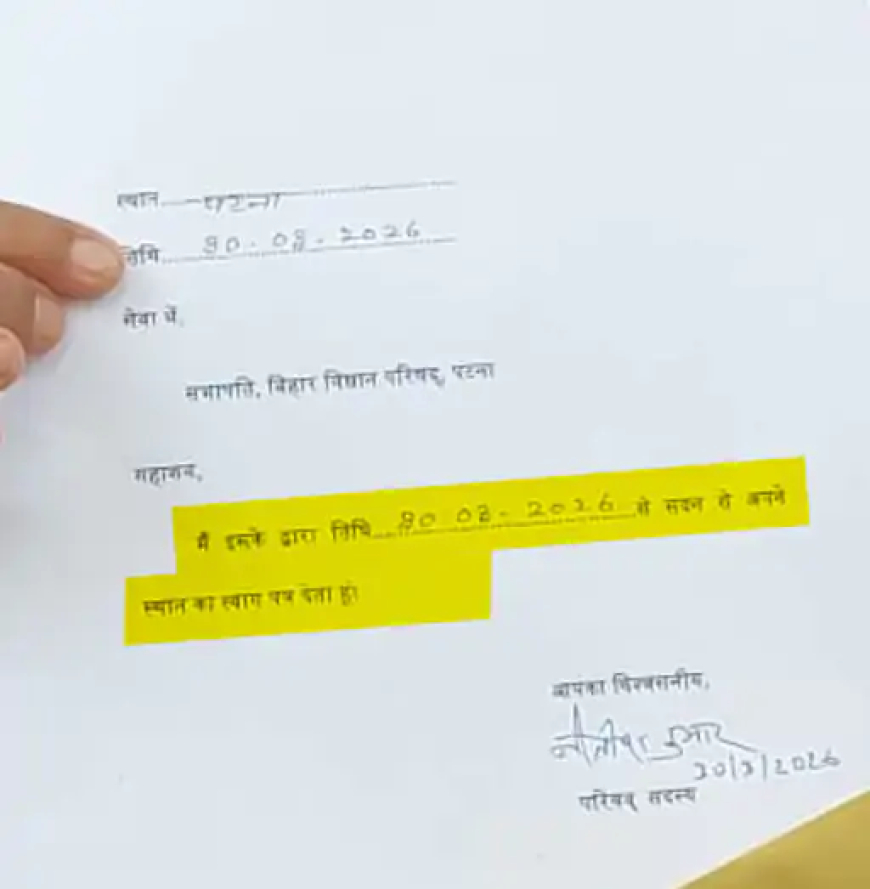 स्थान.....पटना.....
तिथि.....30.03.2026.....
सेवा में,
सभापति, बिहार विधान परिषद्, पटना
महाशय,
मैं इसके द्वारा तिथि.....30 03-2026.....से सदन से अपने
स्थान का त्याग पत्र देता हूं।
आपका विश्वसनीय,
नीतीश कुमार
30/3/2026
परिषद् सदस्य